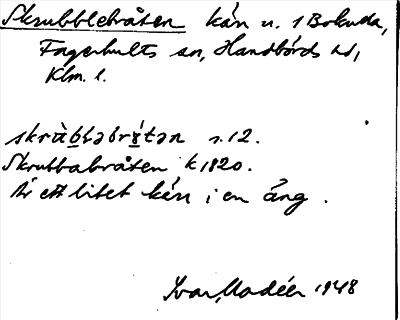 Skrubblebråten kärr u. 1 Bokuda,
Fagerhults sn, Handbörds hd,
Klm. l.
skrùbləbrɤ́tən s. 12.
Skrubbabråten k 1820.
Är ett litet kärr i en äng.
Ivar Modéer 1948